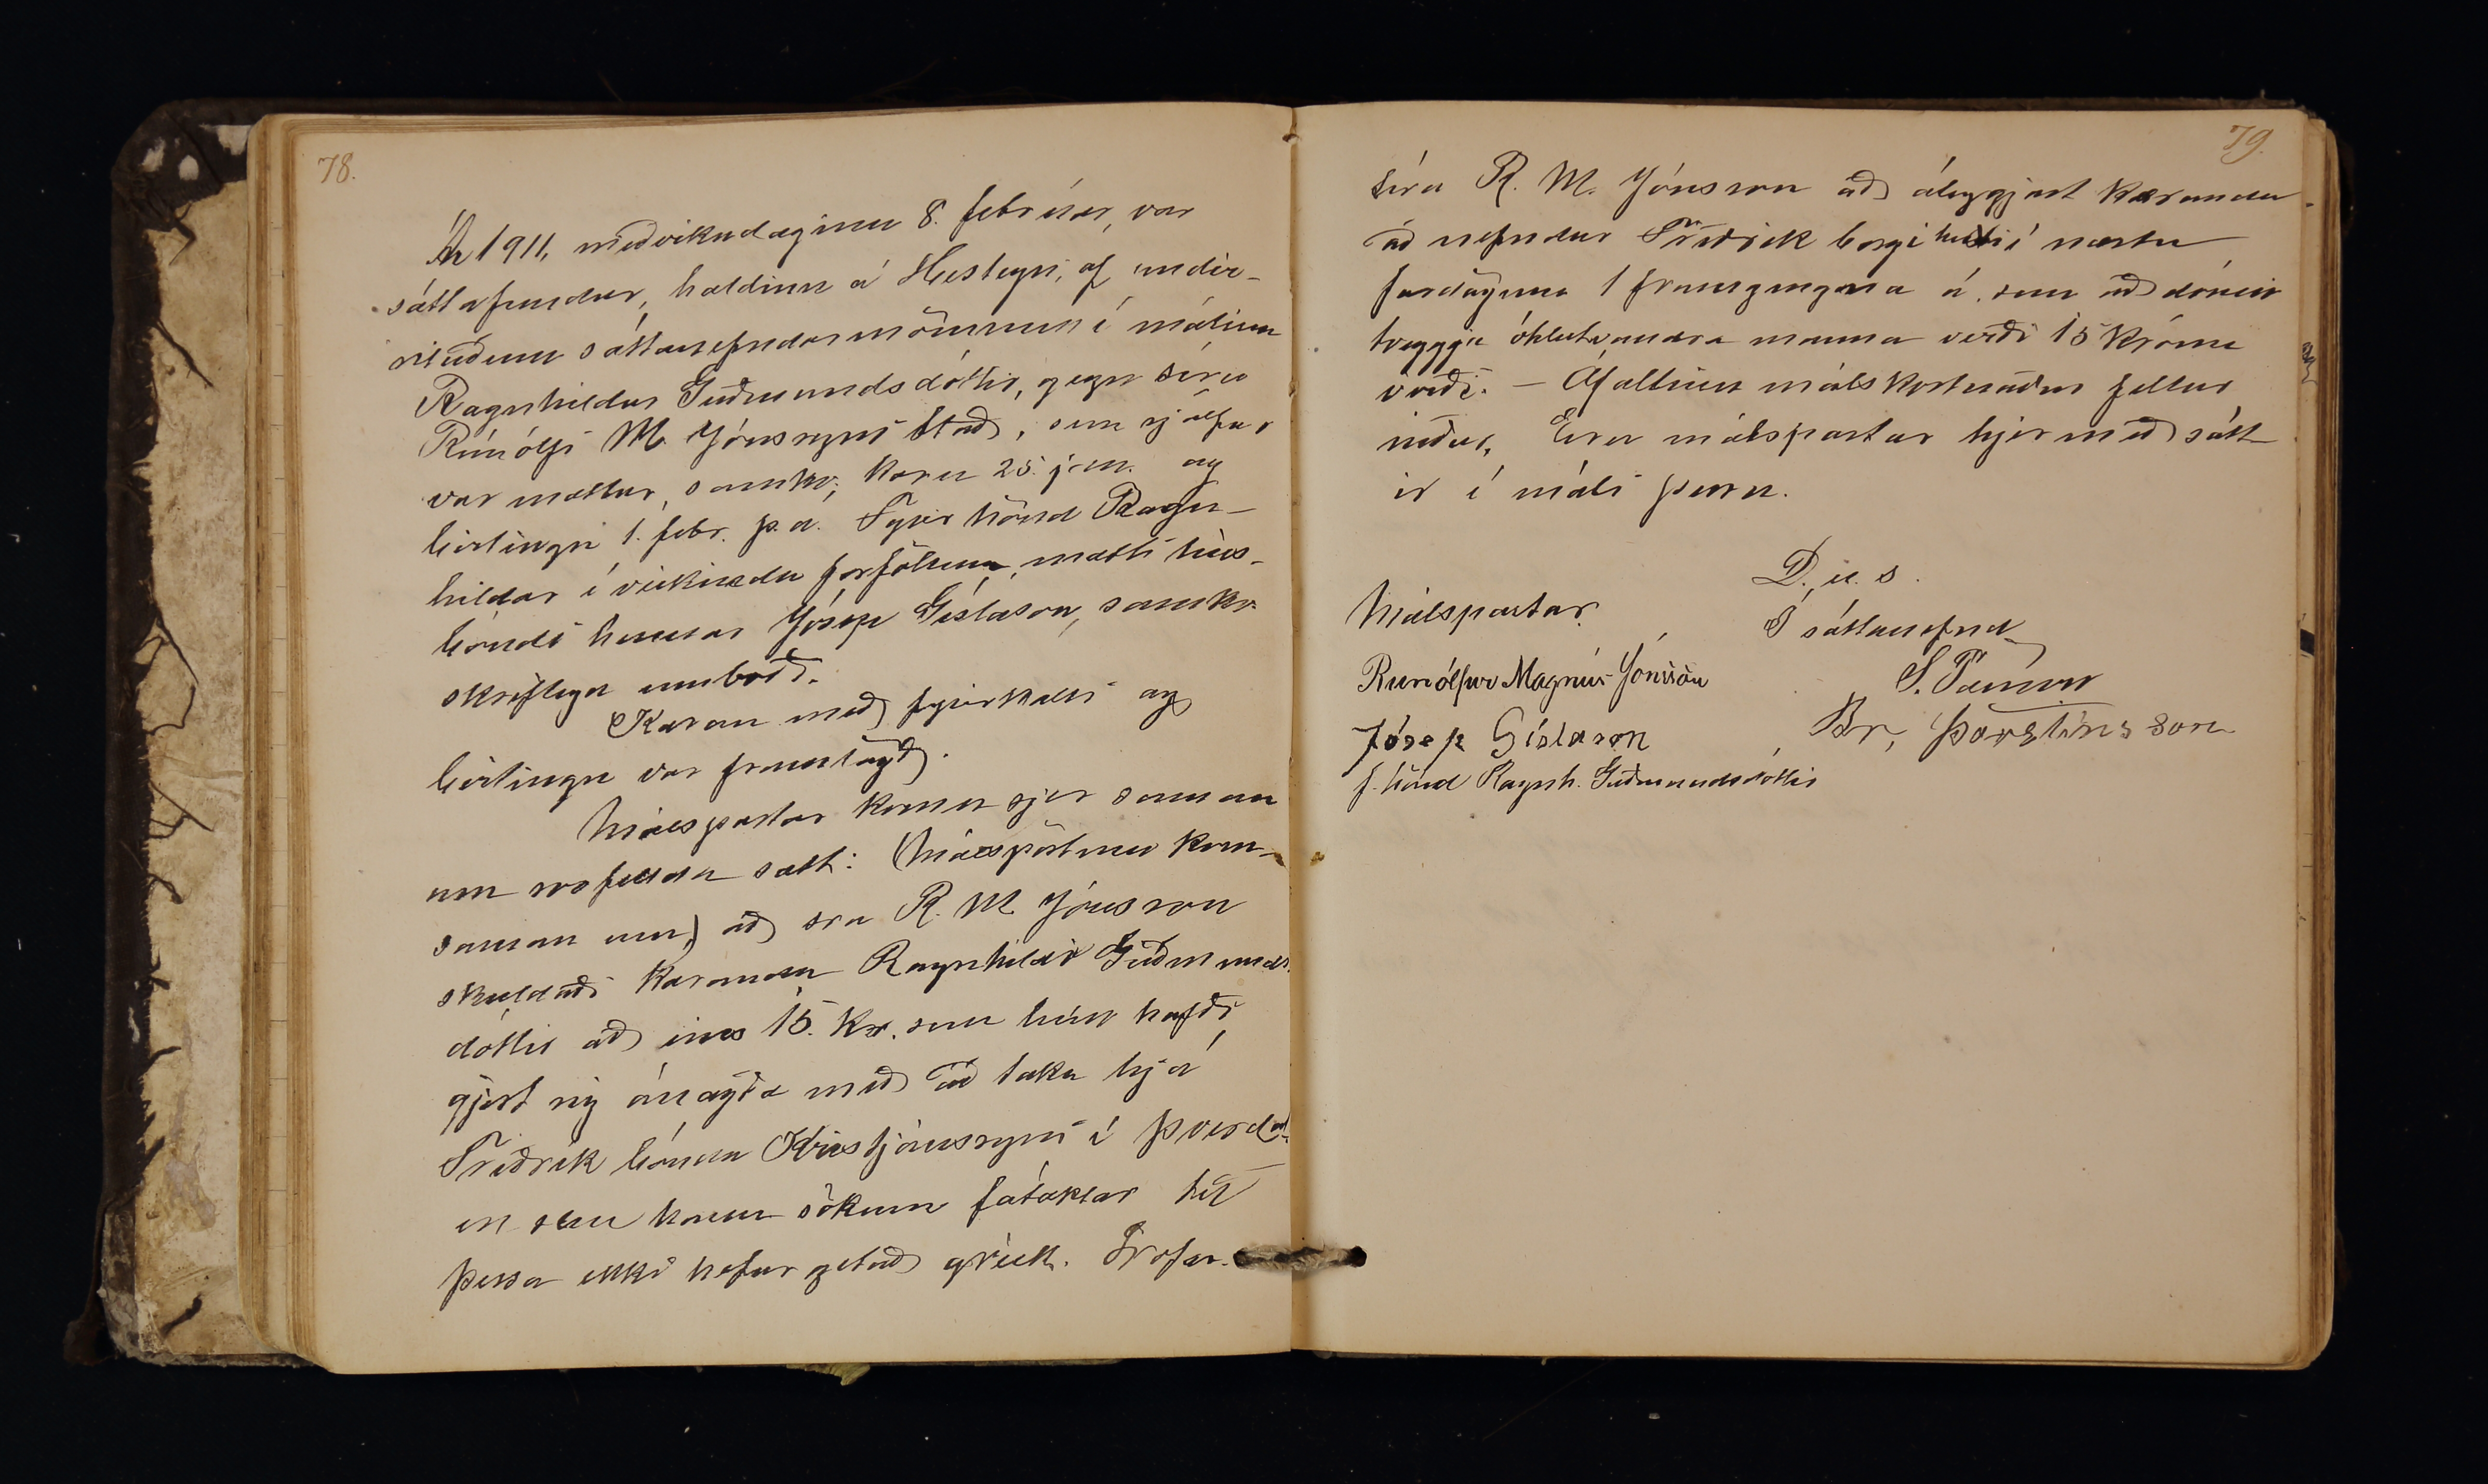 78.
Ár 1911, miðvikudaginn 8. febrúar, var
sáttafundur, haldinn á Hesteyri, af undir-
rituðum sáttanefndarmönnum í málinu
Ragnhildur Guðmundsdóttir, gegn séra
Rúnólfi M. Jónssyni Stað, sem sjálfur
var mættur, samkv. kæru 25. jan. og
birtingu 1. febr. þ.á. Fyrir hönd Ragn-
hildar í veikinda forföllum, mætti hús-
bóndi hennar Jósep Gíslason, samkv.
skriflegu umboði.
Kæran með fyrirkalli og
birtingu var framlögð.
Málspartar komu sjer saman
um svofellda sætt: (Málspörtum kom
saman um) að sra R. M. Jónsson
skuldaði kæranda Ragnhildi Guðmunds-
dóttir að eins 15. kr. sem hún hafði
gjört sig ánægða með að taka hjá
Friðrik bónda Kristjánssyni í Þverdal
en sem hann sökum fátæktar til
þessa ekki hefur getað greitt. Lofar
79.
séra R. M. Jónsson að ábyrgjast kæranda
að nefndur Friðrik borgi henni í næstu
fardögum 1 framgengna á sem að dómi
tveggja óhlutvandra manna verði 15 króna
virði. – Áfallinn málskostnaður fellur
niður. Eru málspartar hjer með sátt-
ir í máli þessu.
D. u. s.
Málspartar.
Í sáttanefnd
Runólfur Magnús Jónsson
S. Pálmason
Jósep Gíslason
Br. Þorsteinsson
f. hönd Ragnh. Guðmundsdóttir